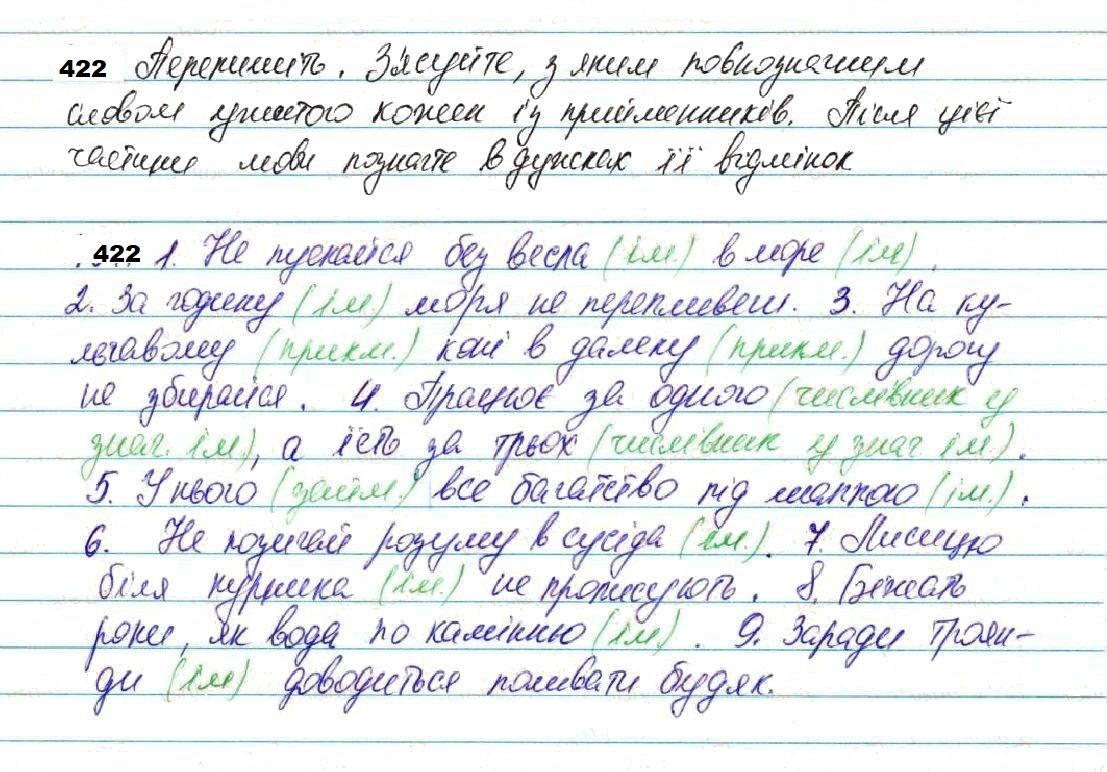 422 Перепишіть. З'ясуйте, з яким повнозначним
словом ужитого кожен із прийменників. Після цієї
частини мови позначте в дужках її відмінок
422 1. Не пускайся без весла (ім.) в море (ім).
2. За годину (ім.) моря не перепливеш. 3. На ку-
льгавому (прикм.) коні в далеку (прикм.) дорогу
не збирайся. 4. Працює за одного (числівник у
знач. ім.), а їсть за трьох (числівник у знач ім.).
5. У нього (займ.) все багатство під шапкою (ім.).
6. Не позичай розуму в сусіда (ім.). 7. Лисицю
біля курника (ім.) не прописують. 8. Біжать
роки, як вода по камінню (ім). 9. Заради троян-
ди (ім) доводиться поливати будяк.